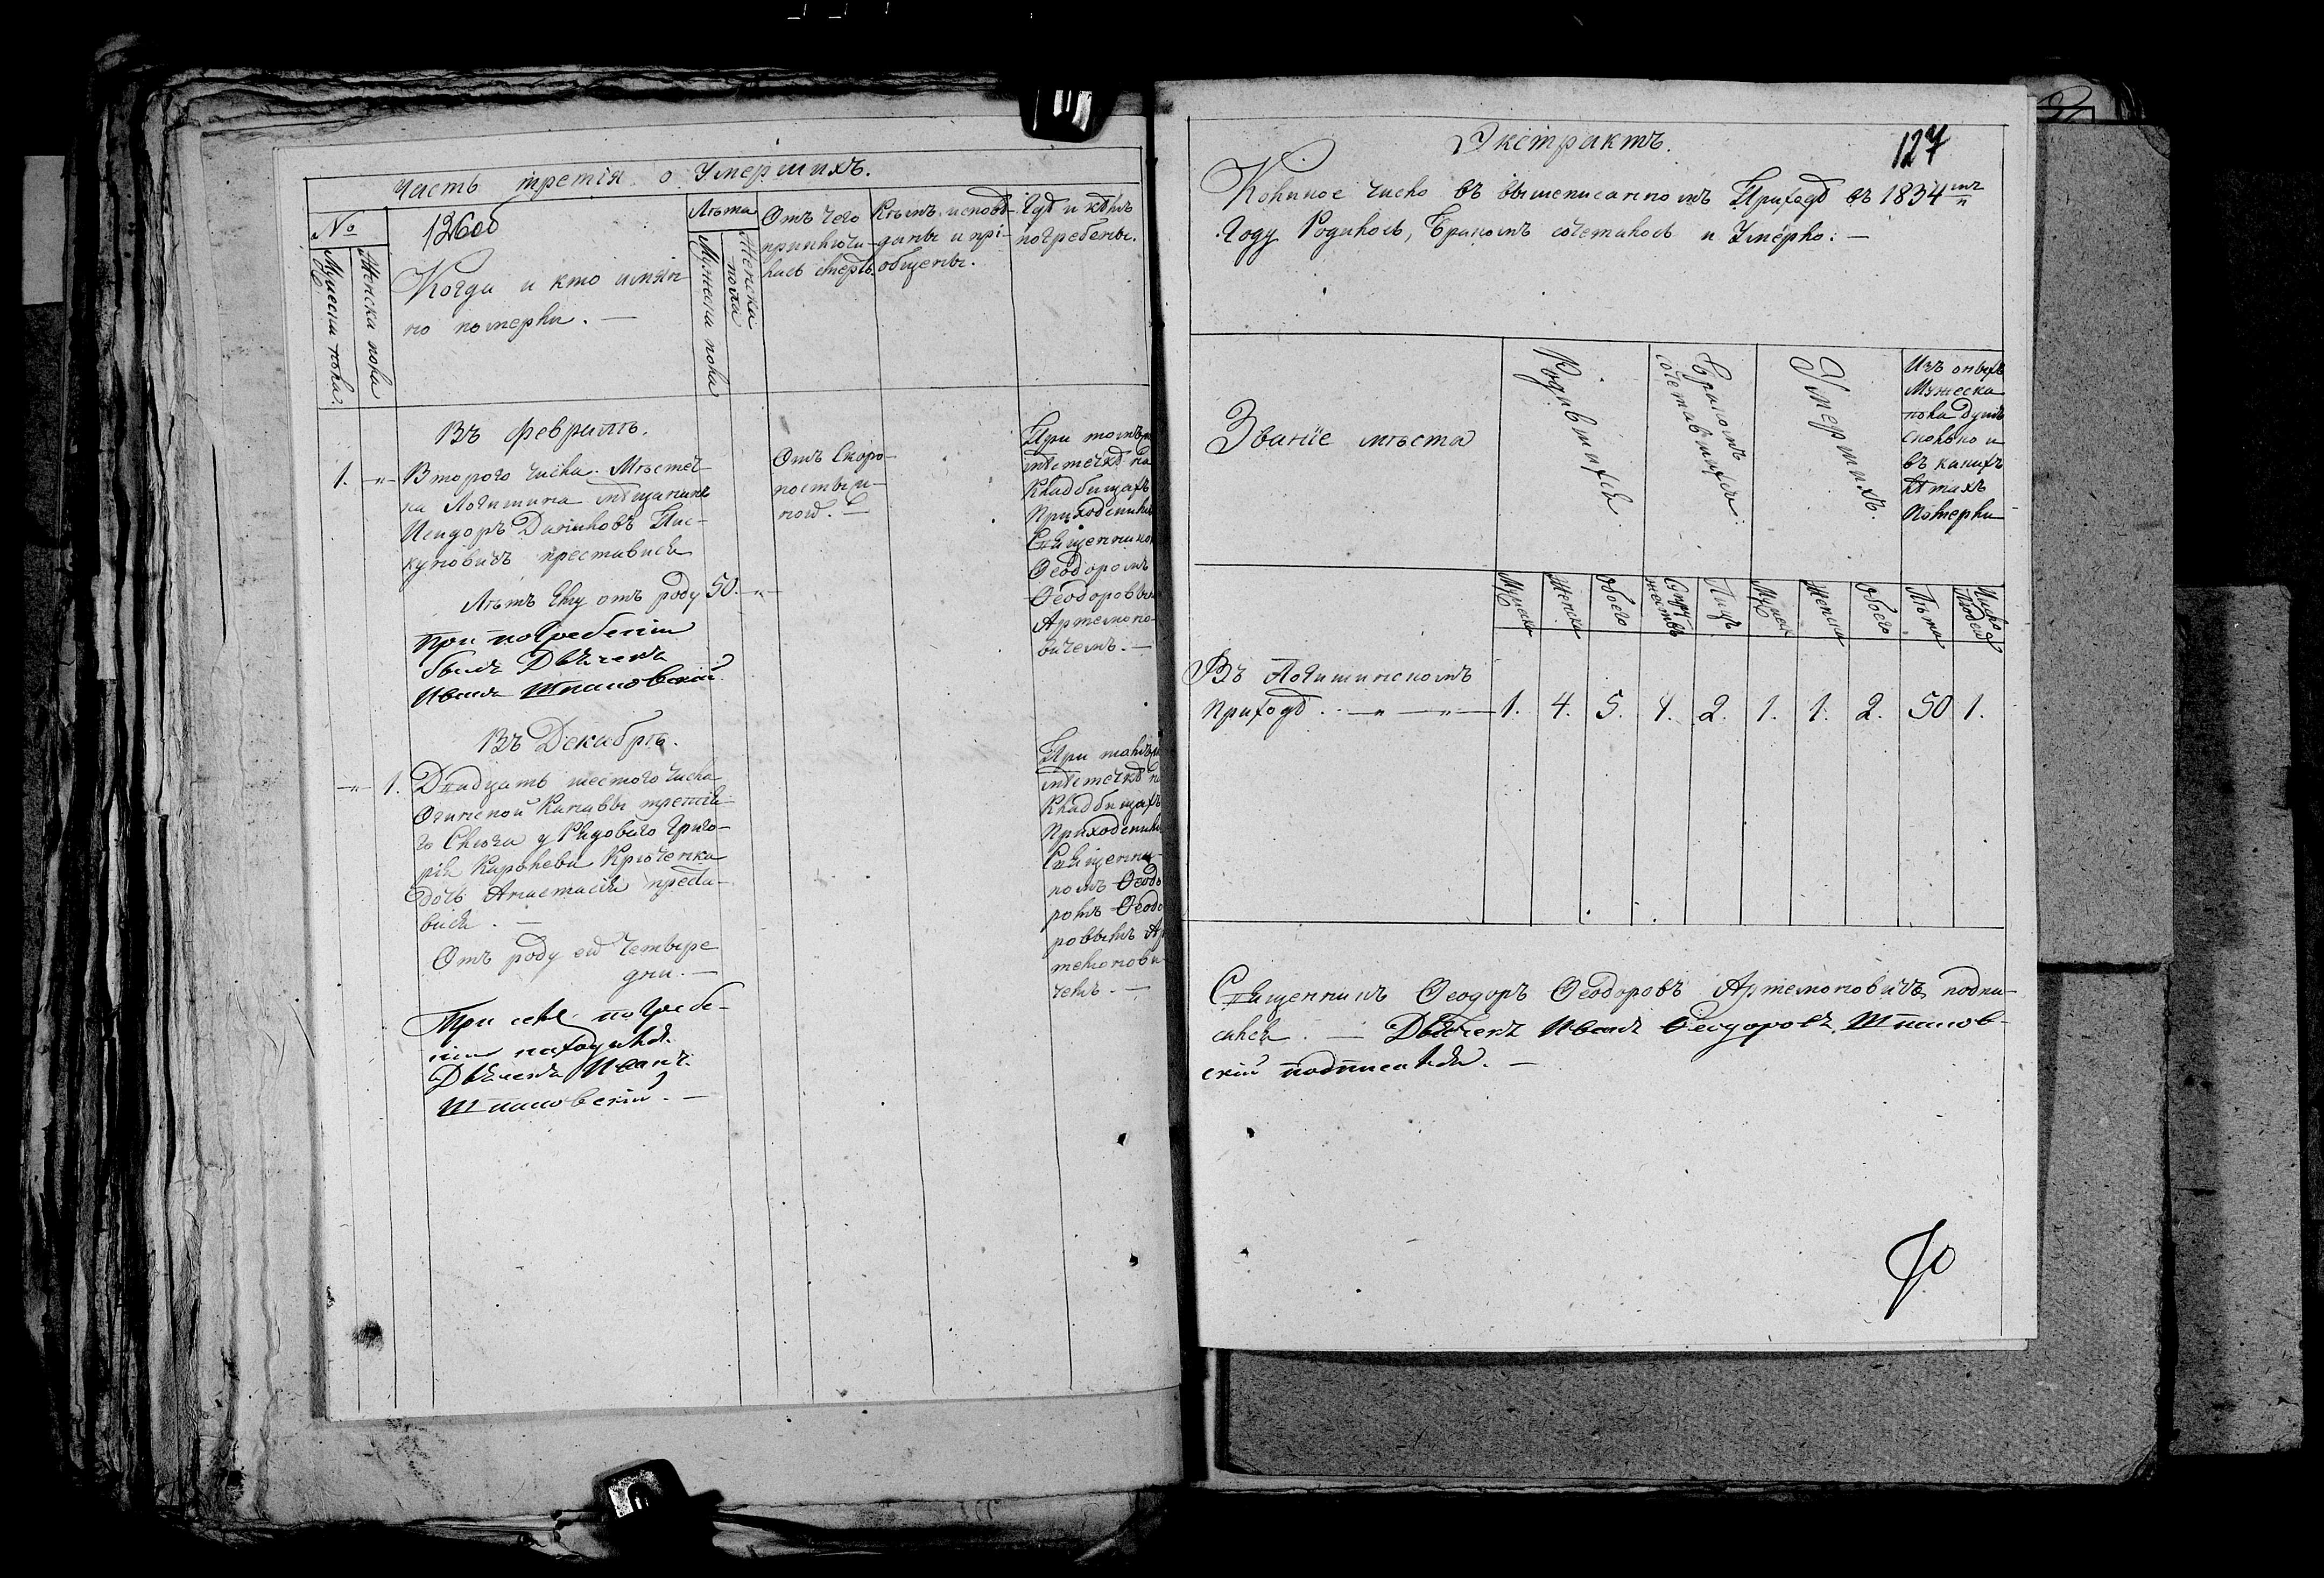 Часть третія о Умершихъ.
№
Мужеска пола.
Женска пола
126об
Когда и кто имян-
но померли. —
Лѣта
Мужеска пола
Женска пола
Отъ чего
приключи-
лась смерть.
Кѣмъ исповѣ-
даны и прі-
общены.
Гдѣ и кѣмъ
погребены.
Въ Февралѣ.
1. -"- Второго числа. Мѣстеч-
ка Логишина мѣщанинъ
Исидоръ Даниловъ Пис-
куновичъ преставися
Лѣтъ Ему отъ роду 50. -"-
При погребеніи
былъ Дьячекъ
Иванъ Шпаковскій
Отъ Скоро-
постыж-
ной. —
При томъ
мѣстечкѣ на
Кладбищахъ
Приходским
Священнико
Ѳеодоромъ
Ѳеодоровым
Артемоно-
вичемъ. —
Въ Декабрѣ.
-"- 1. Двадцать шестого числа
Огинской Канавы третья-
го Слюза у Рядового Григо-
рія Карпѣева Крюченка
дочь Анастасія преста-
вися. —
Отъ роду ей Четыре
дни. —
При семъ погребе-
ніи находился
Дьячекъ Иванъ
Шпаковскій. —
При томъ
мѣстечкѣ на
Кладбищахъ
Приходским
Священни-
комъ Ѳеодо
ромъ Ѳеодо
ровымъ Ар
темонови-
чемъ. —
127
Экстрактъ.
Коликое число въ вышеписанномъ Приходѣ въ 1834мъ
Году Родилось, Бракомъ сочеталось и Умерло: —
Званіе мѣста
Родившихся.
Бракомъ
сочетавшихся.
Умершихъ.
Изъ оныхъ
Мужеска
пола душъ
сколько и
въ какихъ
лѣтахъ
померли
Мужеска
Женска
Обоего
Супру-
жествъ
Лицъ
Мужеска
Женска
Обоего
Лѣта
Число
Людей
Въ Логишинскомъ
Приходѣ. — " — " — 1. 4. 5. 1. 2. 1. 1. 2. 50 1.
Священникъ Ѳеодоръ Ѳеодоровъ Артемоновичъ подпи-
сался. — Дьячекъ Иванъ Ѳеодоровъ Шпаков-
скій подписался. —